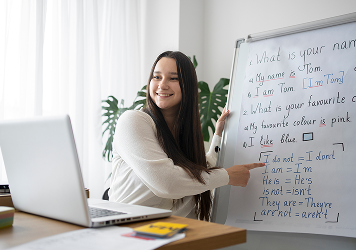 1. What is your nam
a) My name is Tom.
b) I am Tom [I'm Tom]
2. What is your favourite c
a) My favourite colour is pink
b) I like blue
I do not = I don't
I am = I'm
He is = He's
is not = isn't
They are = They're
are not = aren't